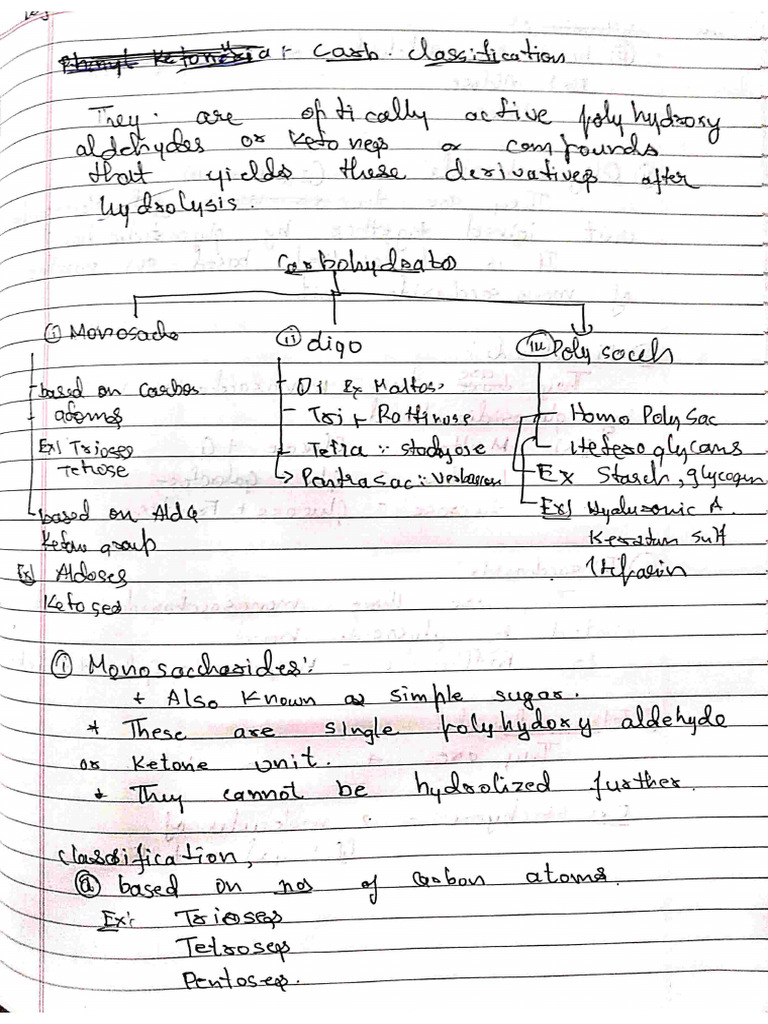 Phenyl Ketonuria :- Carb. classification
They are optically active polyhydroxy
aldehydes or Ketones or compounds
that yields these derivatives after
hydrolysis.
Carbohydrate
(i) Monosach
based on carbon
atoms
Ex| Trioses
Tetrose
based on Ald &
Keton group
Ex| Aldoses
Ketoses
(ii) oligo
Di Ex Maltos,
Tri + Raffinose
Tetra :: stachyose
Pentrasac :: Verbascon
(iii) Poly sacch
Homo PolySac
Hetero glycans
Ex Starch, glycogen
Ex| Hyaluronic A.
Keratan Sulf
Heparin
(i) Monosaccharides:
+ Also Known as simple sugar.
* These are single polyhydoxy aldehyde
or Ketone unit.
* They cannot be hydrolized further.
Classification,
(a) based on nos of carbon atoms.
Ex: Trioses
Tetroses
Pentoses.